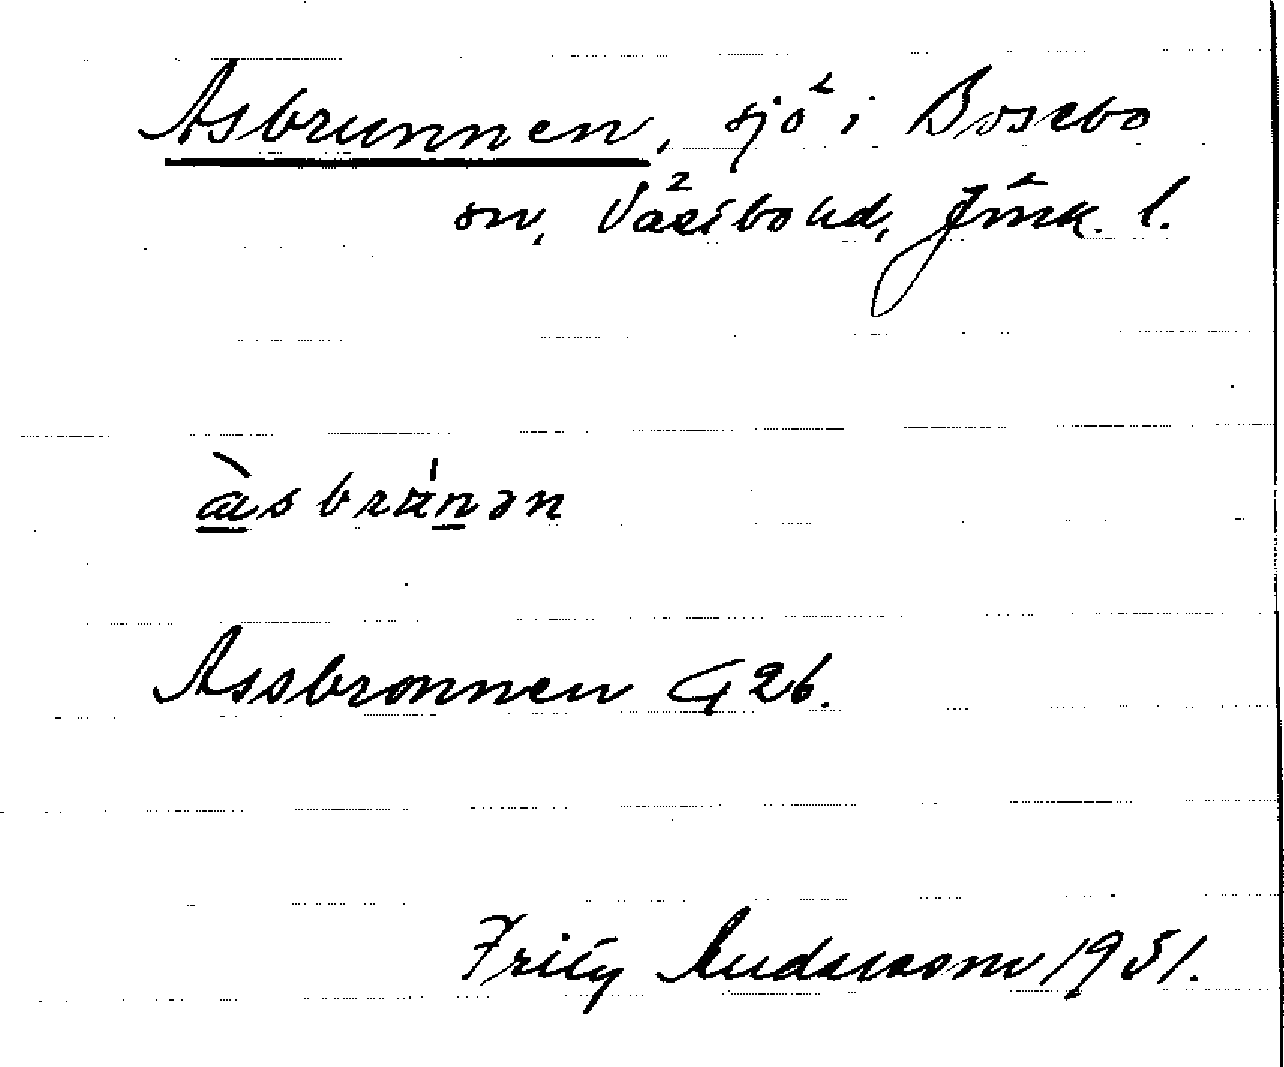 Asbrunnen, sjö i Bosebo
sn, Västbo hd, Jönk. l.
àsbrúnən
Assbronnen G 26.
Fritz Andersson 1951.